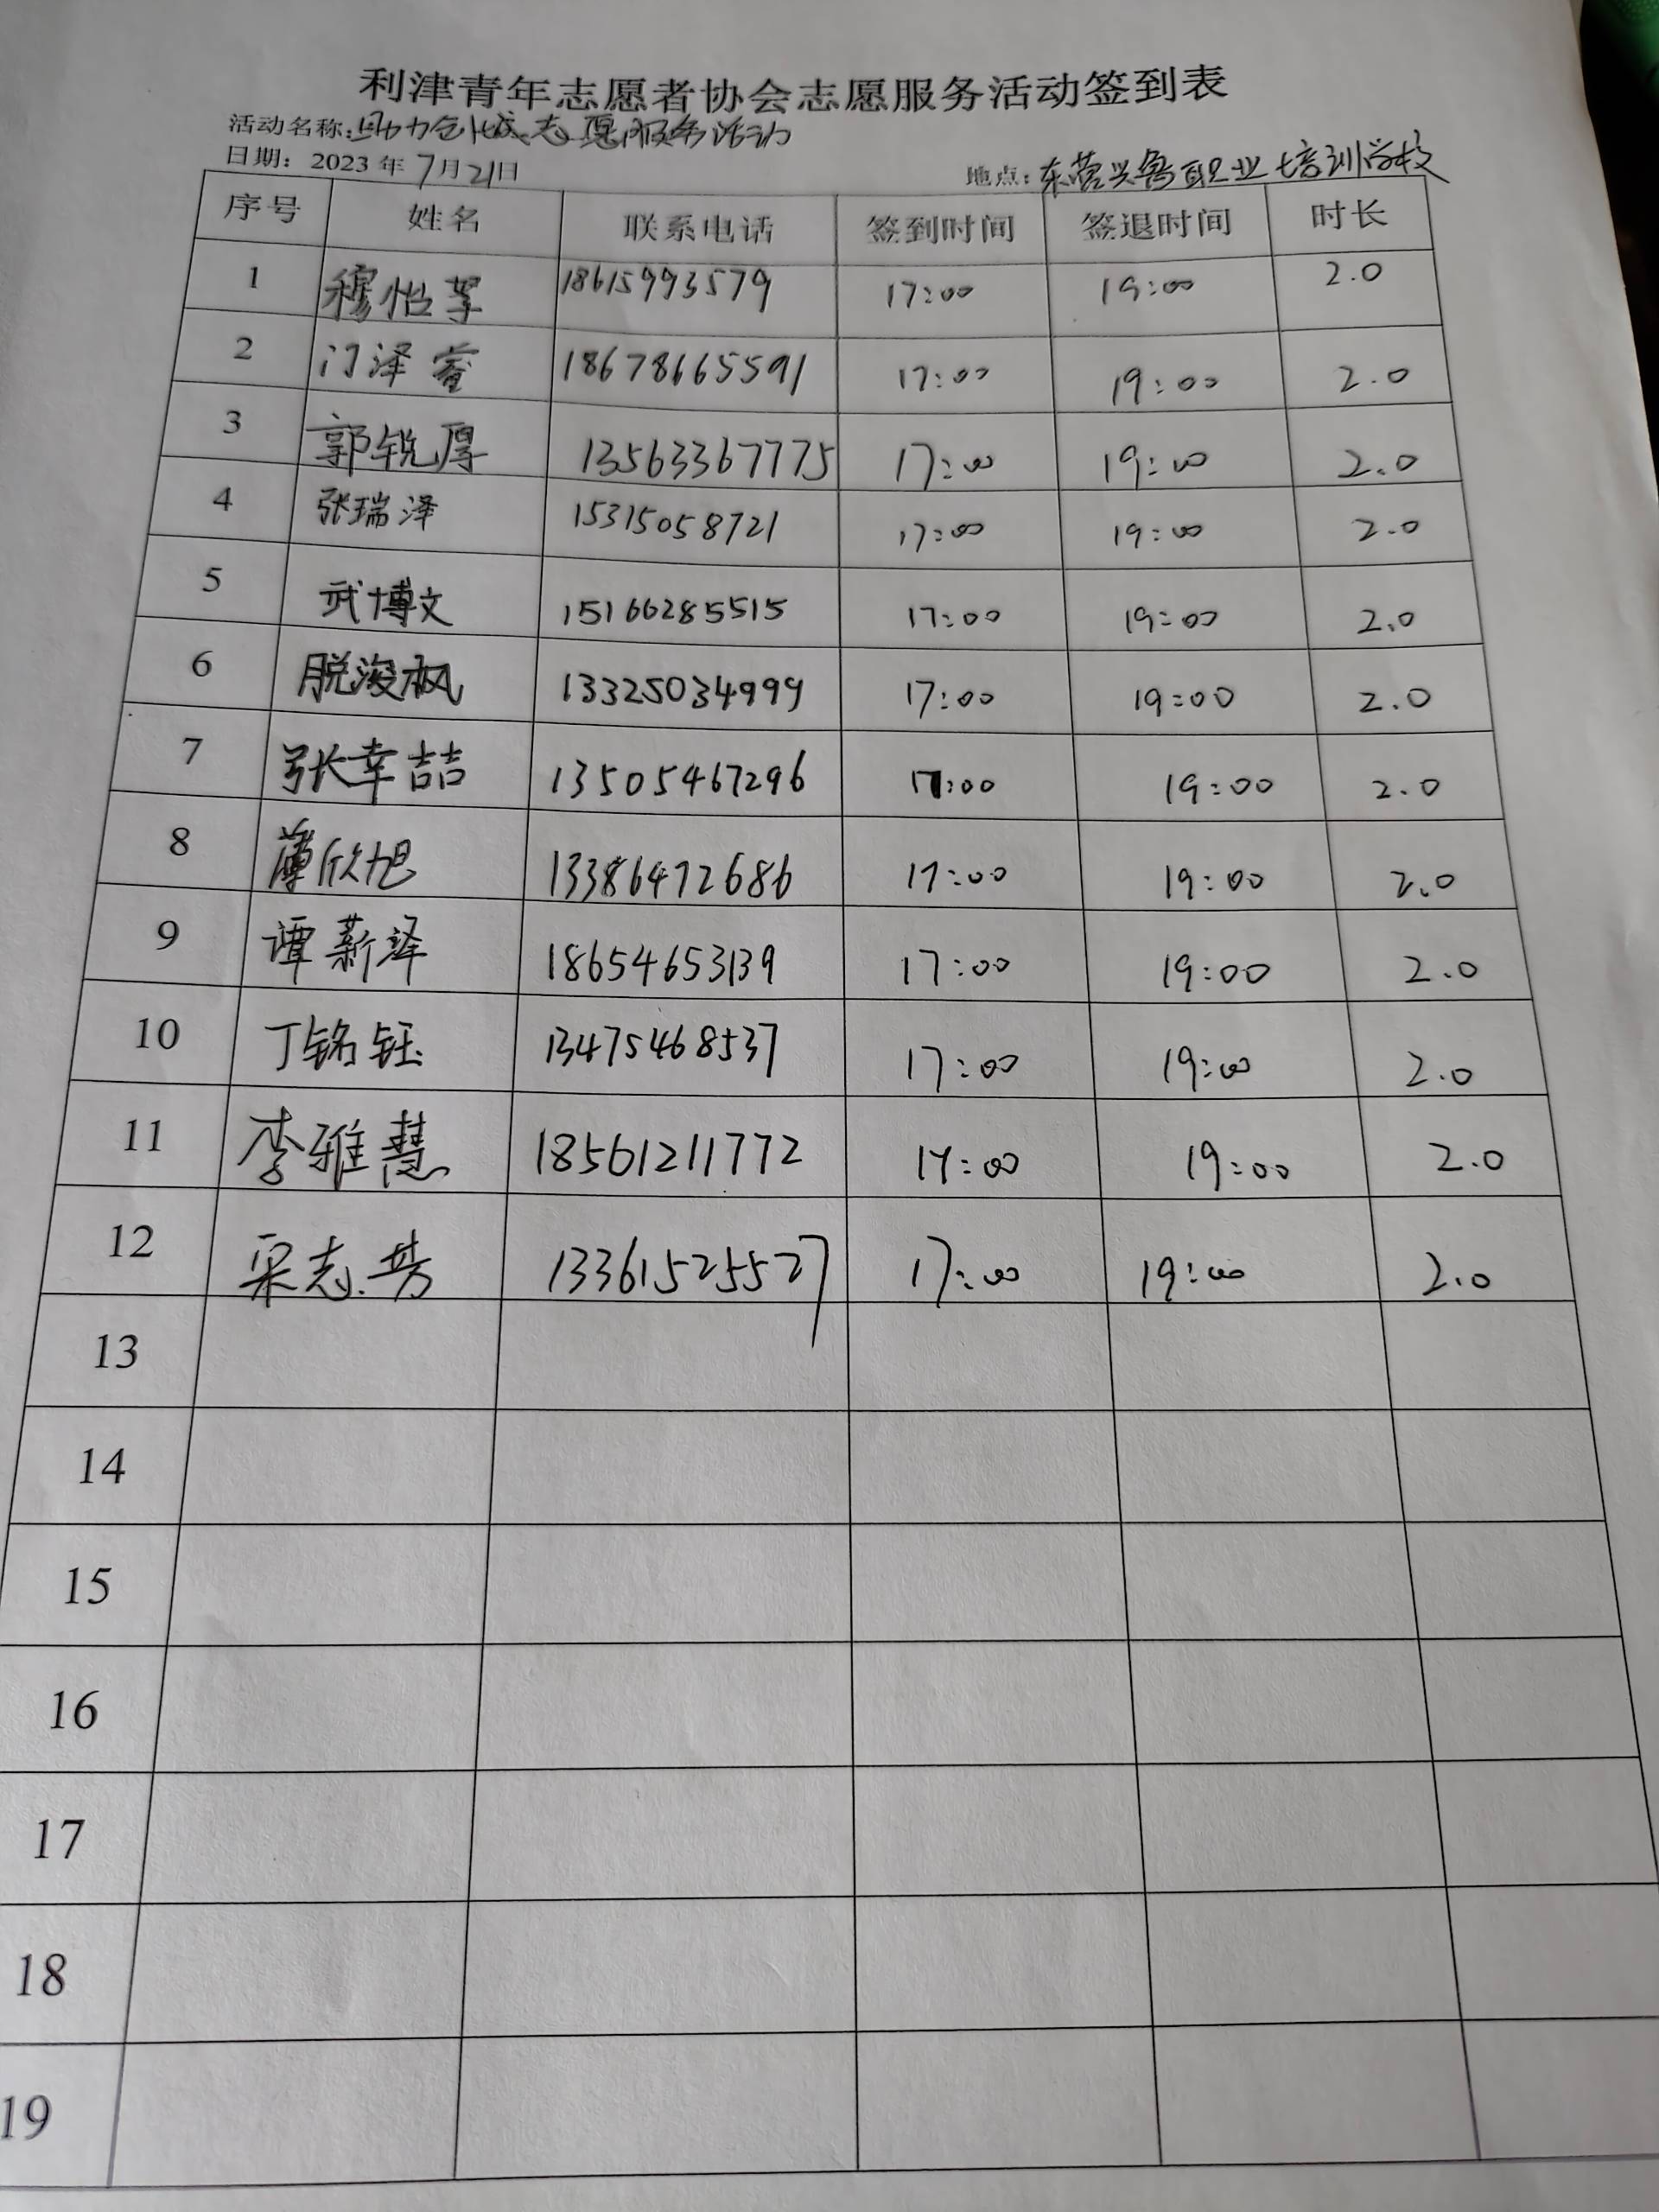 利津青年志愿者协会志愿服务活动签到表
活动名称:助力创城志愿服务活动
日期：2023年7月21日 地点：东营兴鲁职业培训学校
序号 姓名 联系电话 签到时间 签退时间 时长
1 穆怡 18615993579 17:00 19:00 2.0
2 门泽睿 18678665591 17:00 19:00 2.0
3 郭锐厚 13563367775 17:00 19:00 2.0
4 张瑞泽 15315058721 17:00 19:00 2.0
5 武博文 15166285515 17:00 19:00 2.0
6 脱浚枫 13325034999 17:00 19:00 2.0
7 张幸喆 13505467296 17:00 19:00 2.0
8 薄欣旭 13386472686 17:00 19:00 2.0
9 谭薪泽 18654653139 17:00 19:00 2.0
10 丁铭钰 13475468537 17:00 19:00 2.0
11 李雅慧 18561211772 17:00 19:00 2.0
12 志芳 13361525527 17:00 19:00 2.0
13
14
15
16
17
18
19